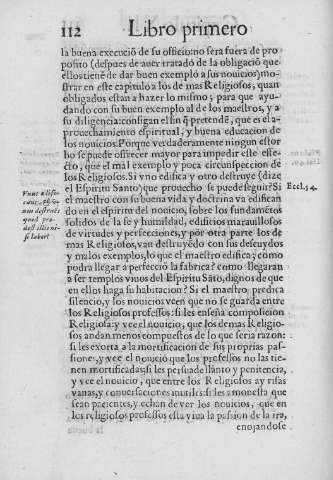 112 Libro primero
la buena execució de su officio: no sera fuera de pro
posito (despues de auer tratado de la obligació que
ellos tiene de dar buen exemplo a sus nouicios) mo-
strar en este capitulo a los de mas Religiosos, quan
obligados estan a hazer lo mismo; para que ayu-
dando con su buen exemplo al de los maestros, y a
su diligencia: consigan el fin q̃ pretendē, que es el a-
prouechamiento espiritual, y buena educacion de
los nouicios. Porque verdaderamente ningun estor
bo se puede offrecer mayor para impedir este effe-
cto, que el mal exemplo y poca circunspeccion de
los Religiosos. Si vno edifica y otro destruye (dize
el Espiritu Santo) que prouecho se puede seguir? Si
el maestro con su buena vida y doctrina va edifican
do en el espiritu del nouicio, sobre los fundamētos
solidos de la fe y humildad, edificios marauillosos
de virtudes y perfecciones, y por otra parte los de
mas Religiosos, van destruyēdo con sus descuydos
y malos exemplos, lo que el maestro edifica; como
podra llegar a perfecció la fabrica? como llegaran
a ser templos viuos del Espiritu Sāto, dignos de que
en ellos haga su habitacion? Si el maestro predica
silencio, y los nouicios veen que no se guarda entre
los Religiosos professos: si les enseña composicion
Religiosa: y vee el nouicio, que los demas Religio-
sos andan menos compuestos de lo que seria razon:
si les exorta a la mortificacion de sus propias pas-
siones, y vee el nouició que los professos no las tie-
nen mortificadas; si les persuade llanto y penitencia,
y vee el nouicio, que entre los Religiosos ay risas
vanas, y conuersaciones inutiles: si les amonesta que
sean pacientes, y echan de ver los nouicios, que en
los religiosos professos esta viua la passion de la ira,
enojandose
Eccl. 34.
Vnus ædifi-
cans, & v-
nus destruēs
quid pro-
dest illis ni-
si labor?